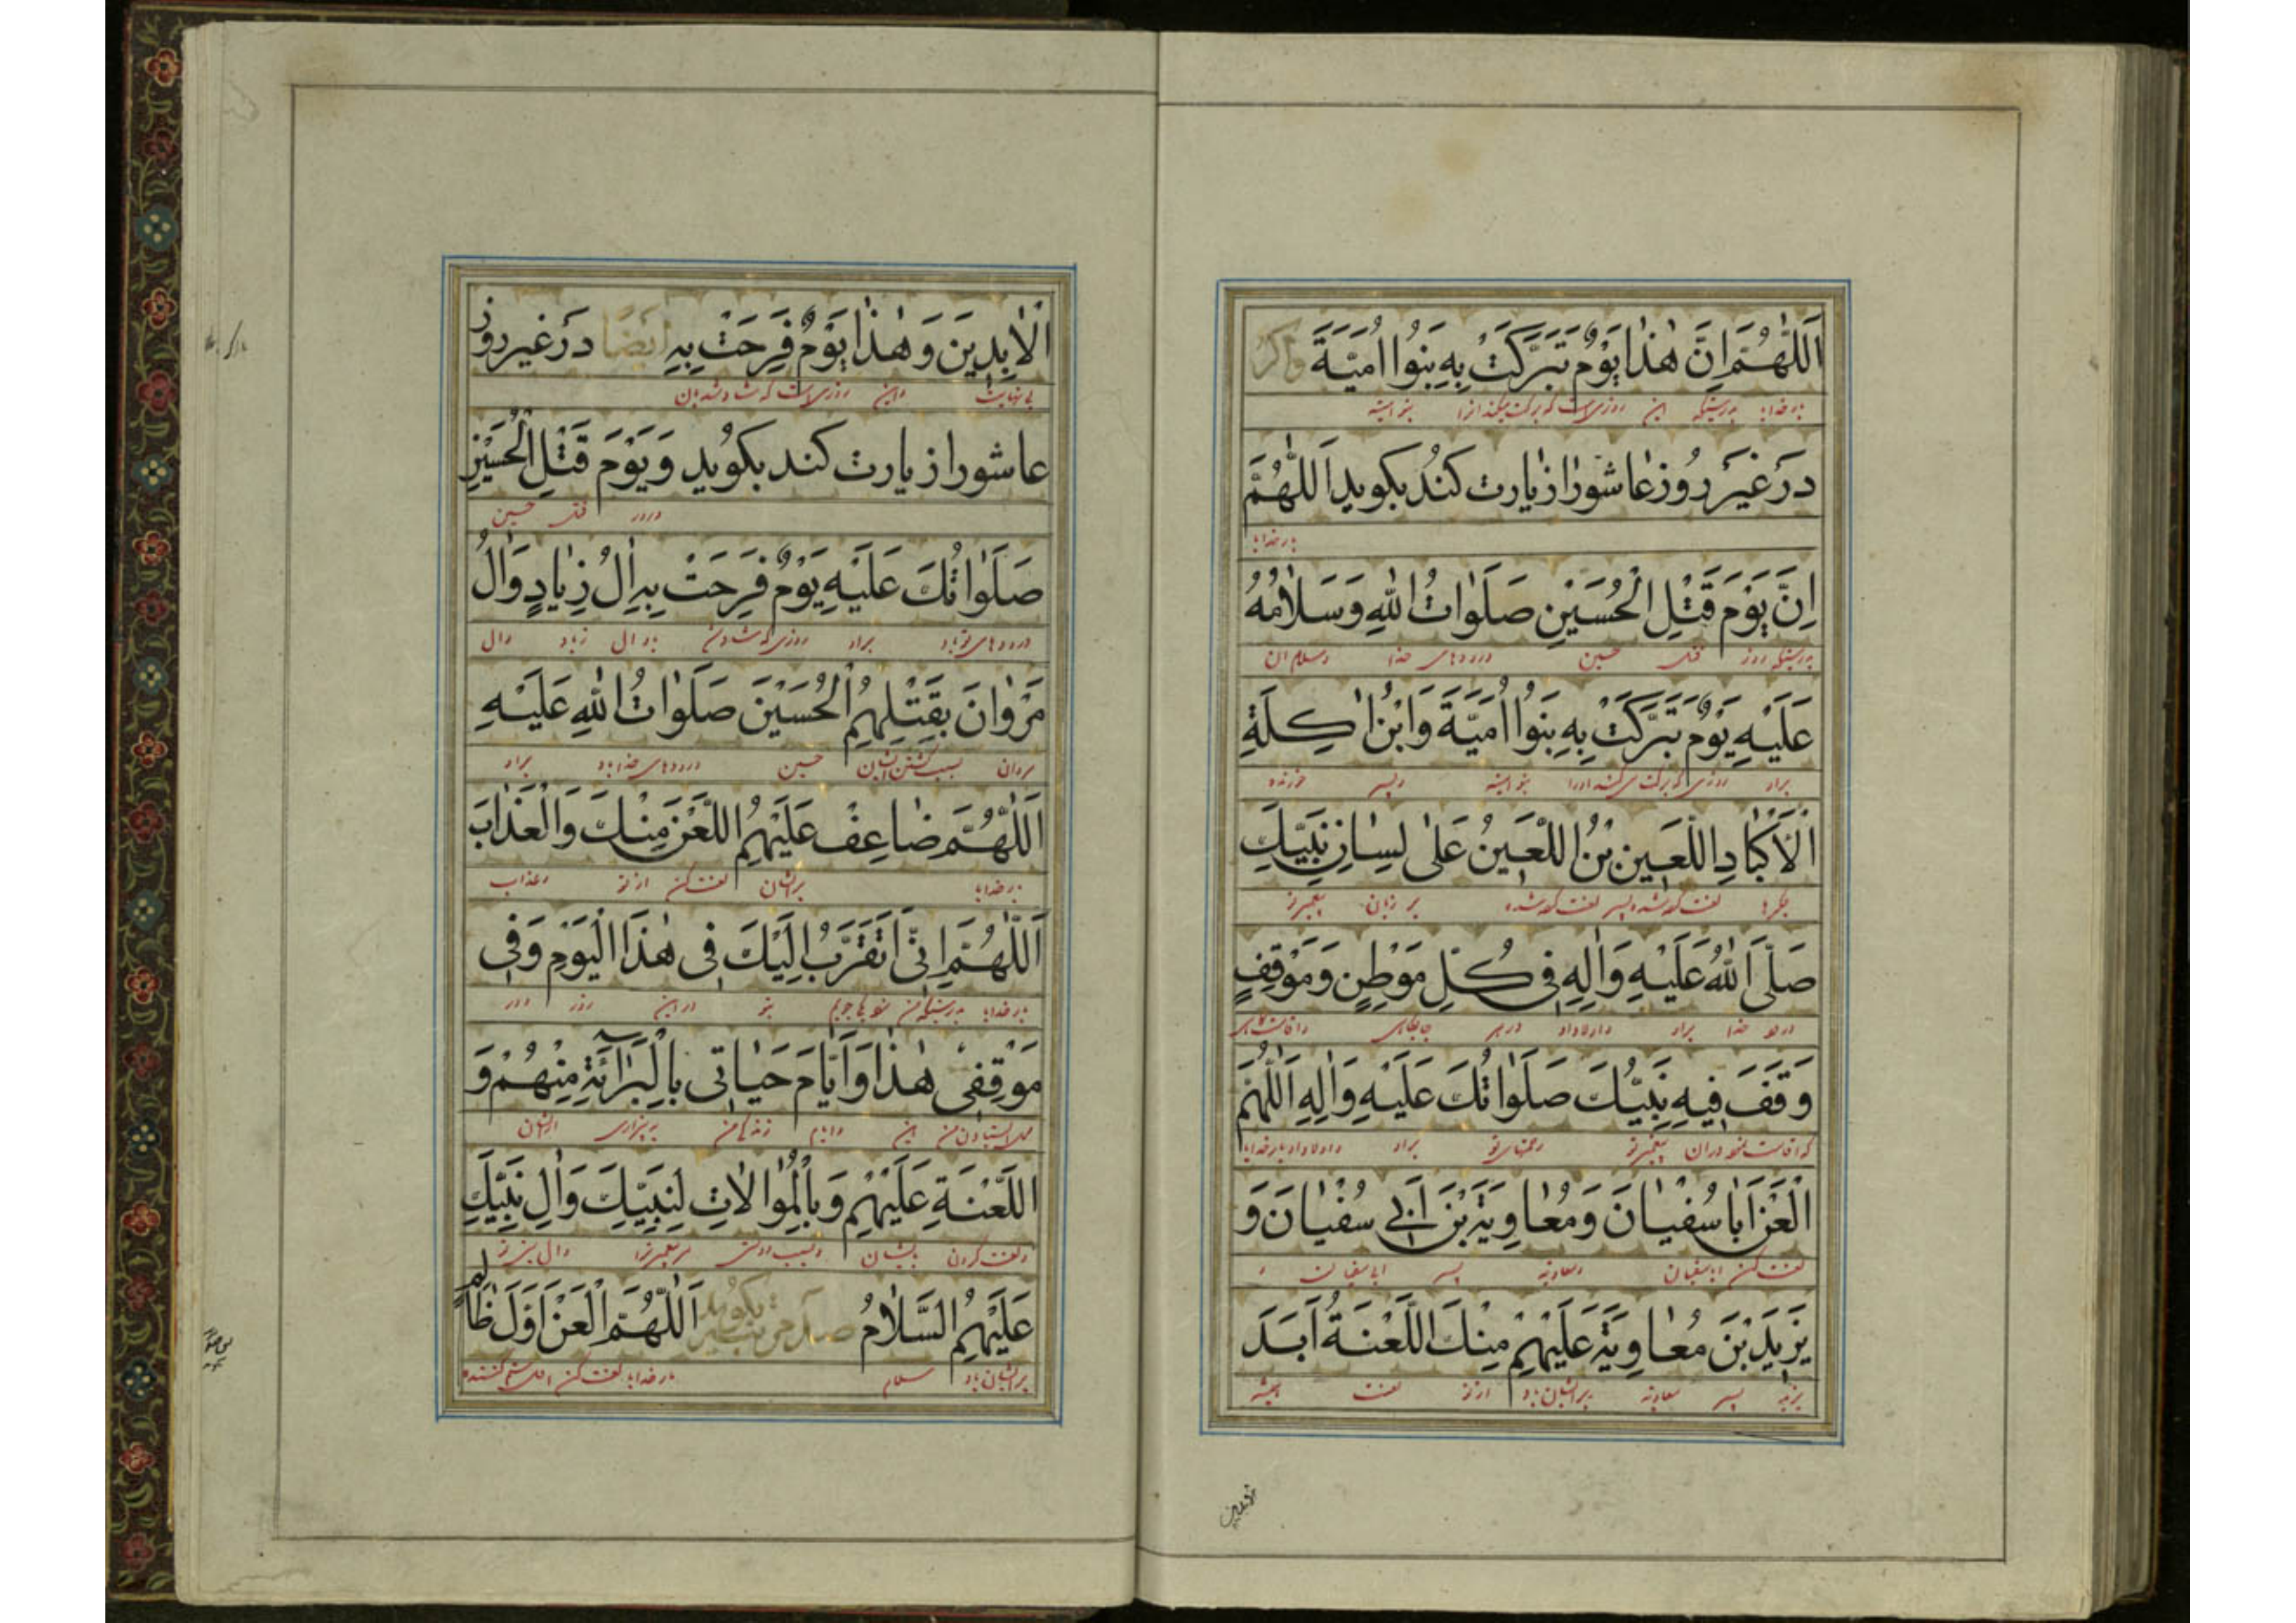 اَللّٰهُمَّ اِنَّ هٰذٰا يَوْمٌ تَبَرَّكَتْ بِهِ بَنُوا اُمَيَّةَ وَاكر
بارخدایا بدرستیکه این روزی است که برکت میکند انرا بنو امیه
دَرَ غَيرَ رُوزعٰاشورٰا زيٰارت كنُد بكويد اَللّٰهُمَّ
بارخدایا
اِنَّ يَوْمَ قَتْلِ الْحُسَيْنِ صَلَوٰاتُ اللهِ وَسَلٰامُهُ
بدرستیکه روز قتل حسین درودهای خدا وسلام ان
عَلَيْهِ يَوْمٌ تَبَرَّكَتْ بِهِ بَنُوا اُمَيَّةَ وَابْنُ اٰكِلَةِ
براو روزی که برکت می کنند اورا بنو امیه وپسر خورنده
الْاَكْبٰادِ اللَّعَينِ بْنُ اللَّعَينُ عَلٰى لِسٰانِ نَبِيِّكَ
جگرها لعنت کرده شده پسر لعنت کرده شده بر زبان پیغمبر تو
صَلَّى اللهُ عَلَيْهِ وَاٰلِهِ فِى كُلِّ مَوْطِنٍ وَمَوْقِفٍ
درود خدا براو واولاد او در هر جایگاهی
وَقَفَ فِيهِ نَبِيُّكَ صَلَوٰاتُكَ عَلَيْهِ وَاٰلِهِ اَللّٰهُمَّ
که اقامت نمود در ان پیغمبر تو رحمتهای تو براو واولاد او بارخدایا
الْعَنْ اَبٰا سُفْيٰانَ وَمُعٰاوِيَةَ بْنَ اَبِي سُفْيٰانَ وَ
لعنت کن ابا سفیان ومعاویه پسر ابا سفیان و
يَزِيْدَ بْنَ مُعٰاوِيَةَ عَلَيْهِمْ مِنْكَ اللَّعْنَةُ اَبَدَ
یزید پسر معاویه بر ایشان باد از تو لعنت همیشه
الْاٰبِدِينَ وَهٰذٰا يَوْمٌ فَرِحَتْ بِهِ ايضًا دَرَ غير روز
بی نهایت واین روزی است که شاد شد بان
عاشورا زيارت كند بكويد وَيَوْمَ قَتْلِ الْحُسَيْنِ
ودر روز قتل حسین
صَلَوٰاتُكَ عَلَيْهِ يَوْمٌ فَرِحَتْ بِهِ اٰلُ زِيٰادٍ وَاٰلُ
درودهای تو باد براو روزی که شاد شد باو ال زیاد وال
مَرْوٰانَ بِقَتْلِهِمُ الْحُسَيْنَ صَلَوٰاتُ اللهِ عَلَيْهِ
مروان بسبب کشتن ایشان حسین درودهای خدا باد براو
اَللّٰهُمَّ ضٰاعِفْ عَلَيْهِمُ اللَّعْنَ مِنْكَ وَالْعَذٰابَ
بارخدایا بر ایشان لعنت کن از تو وعذاب
اَللّٰهُمَّ اِنّى اَتَقَرَّبُ اِلَيْكَ فِى هٰذَا الْيَوْمِ وَفِى
بارخدایا بدرستیکه من بتو در این روز ودر
مَوْقِفِى هٰذٰا وَاَيّٰامِ حَيٰاتى بِالْبَرٰائَةِ مِنْهُمْ وَ
محل ایستادن من این وایام زندگی من به بیزاری از ایشان
اللَّعْنَةِ عَلَيْهِمْ وَبِالْمُوٰالٰاتِ لِنَبِيِّكَ وَاٰلِ نَبِيِّكَ
ولعنت کردن بر ایشان وبسبب دوستی مر پیغمبر ترا وال پیغمبر تو
عَلَيْهِمُ السَّلٰامُ صد مرتبه بكويد اَللّٰهُمَّ الْعَنْ اَوَّلَ ظٰالِمٍ
بر ایشان باد سلام بارخدایا لعنت کن اول ستم کننده